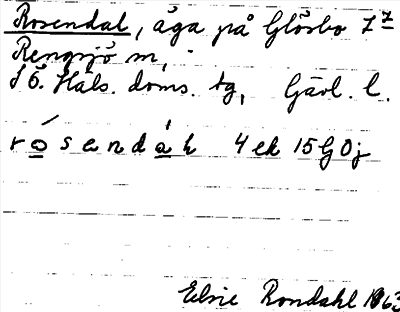 Rosendal, äga på Glösbo 7 2
Rengsjö sn,
S Ö. Häls. doms. tg, Gävl. l.
rosendal 4 ek 15G0j
Elsie Rondahl 1963